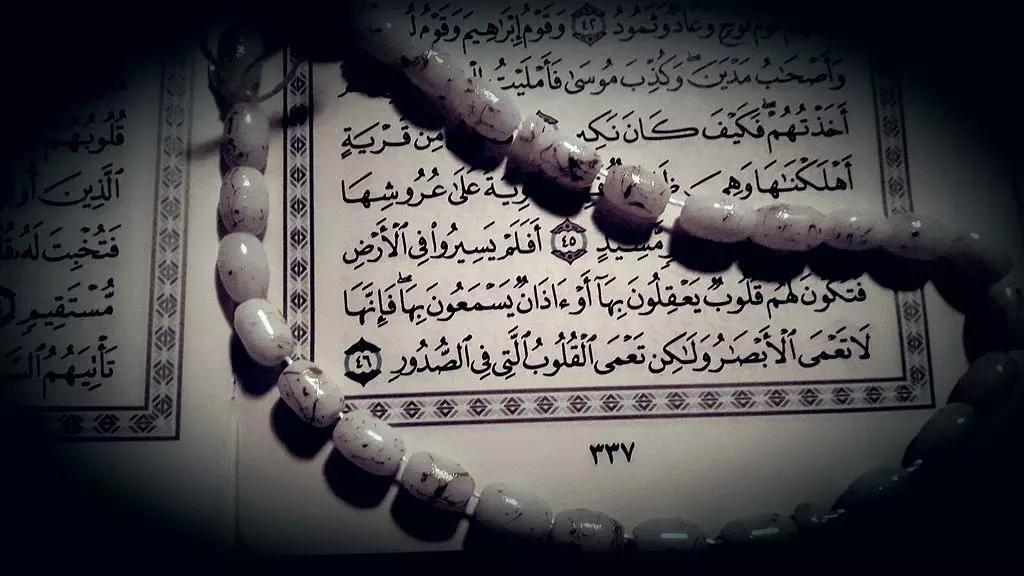 قَوْمُ نُوحٍ وَعَادٌ وَثَمُودُ ٤٢ وَقَوْمُ إِبْرَٰهِيمَ وَقَوْمُ
وَأَصْحَٰبُ مَدْيَنَ ۖ وَكُذِّبَ مُوسَىٰ فَأَمْلَيْتُ
أَخَذْتُهُمْ ۖ فَكَيْفَ كَانَ مِّن قَرْيَةٍ
أَهْلَكْنَٰهَا وَهِىَ عَلَىٰ عُرُوشِهَا
مَّشِيدٍ ٤٥ أَفَلَمْ يَسِيرُوا۟ فِى ٱلْأَرْضِ
فَتَكُونَ لَهُمْ قُلُوبٌ يَعْقِلُونَ بِهَآ أَوْ ءَاذَانٌ يَسْمَعُونَ بِهَا ۖ فَإِنَّهَا
لَا تَعْمَى ٱلْأَبْصَٰرُ وَلَٰكِن تَعْمَى ٱلْقُلُوبُ ٱلَّتِى فِى ٱلصُّدُورِ ٤٦
٣٣٧
قُلُوبُهُمْ
ٱلَّذِينَ
فَتُخْبِتَ لَهُۥ
مُّسْتَقِيمٍ
تَأْتِيَهُمُ